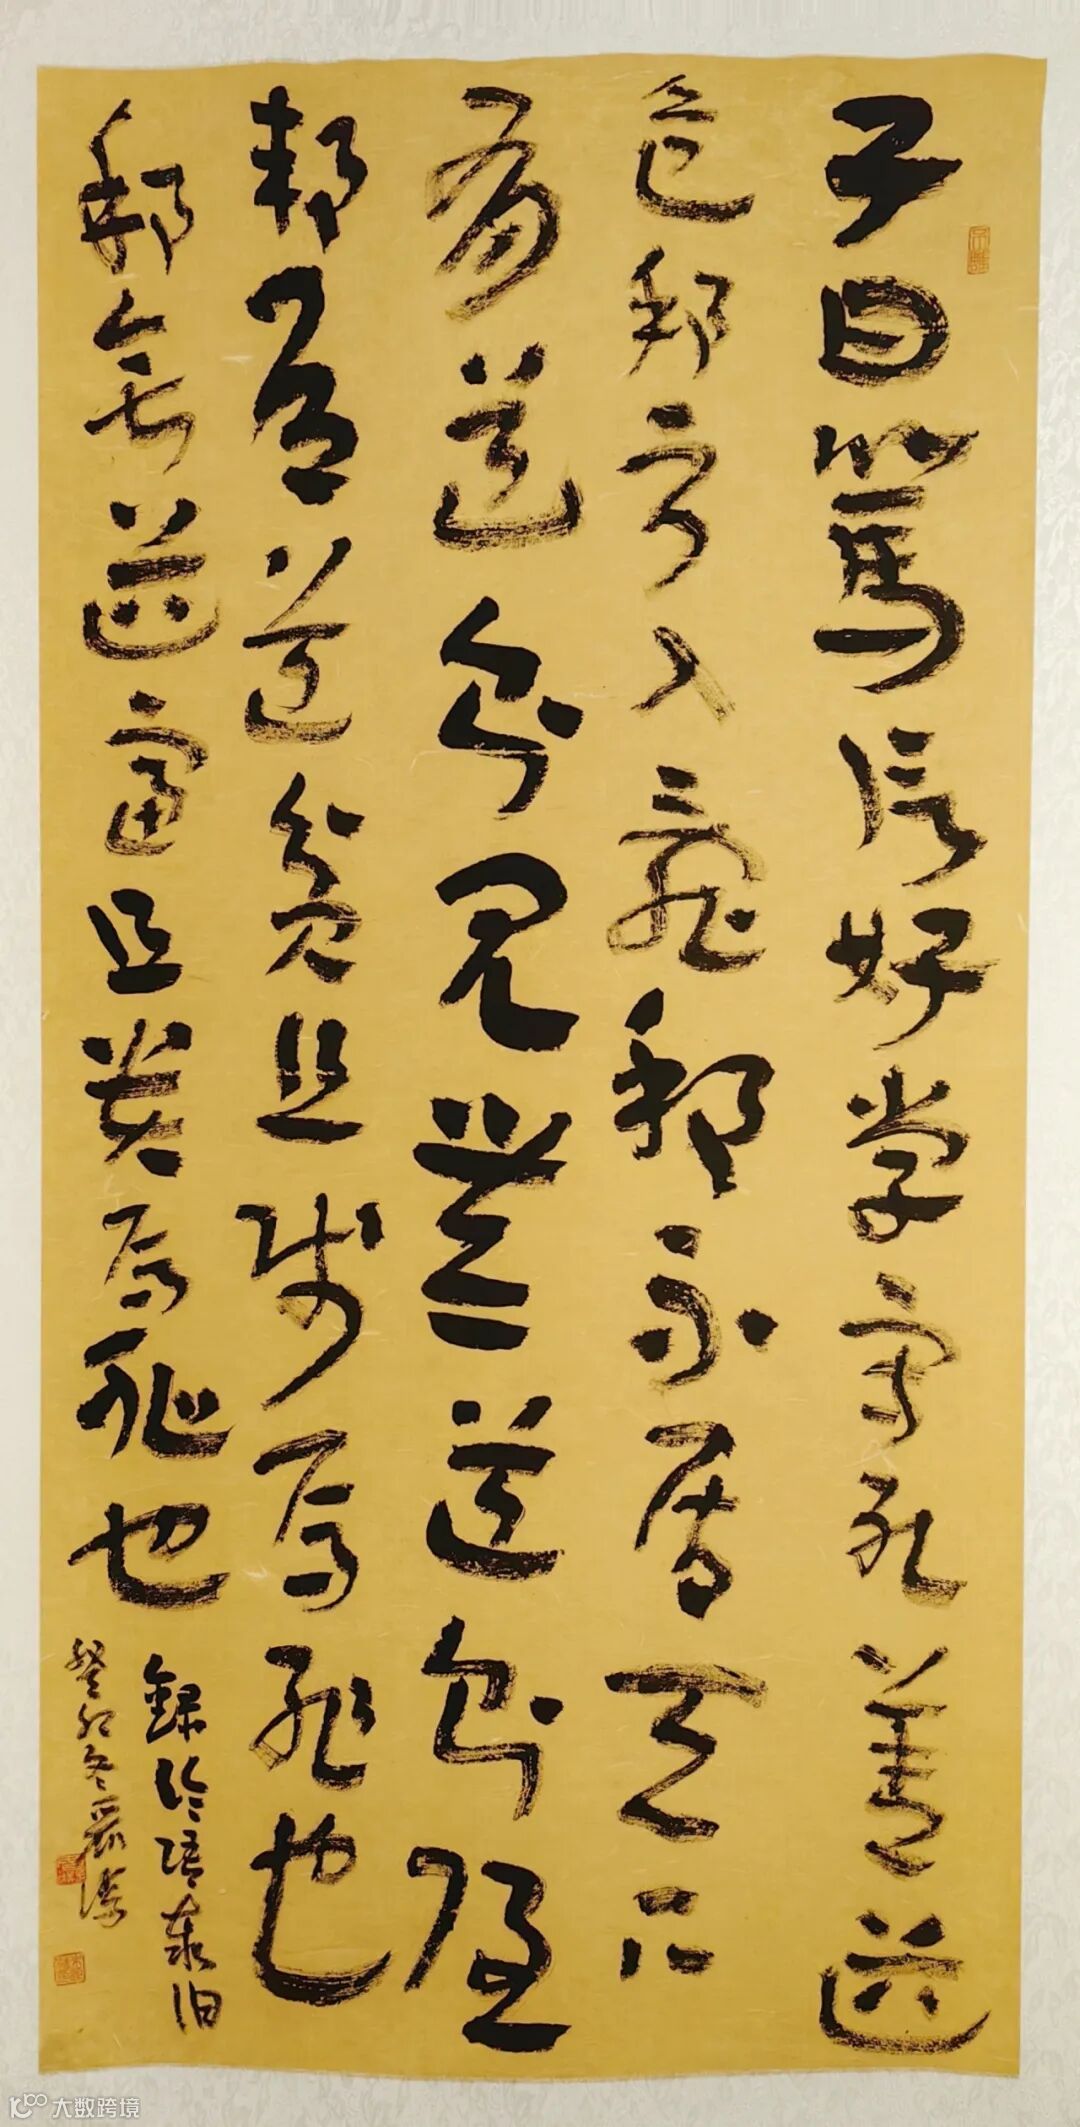 子曰篤信好学守死善道
危邦不入亂邦不居天下
有道則見無道則隱
邦有道貧且賤焉恥也
邦無道富且貴焉恥也
錄論語泰伯
癸卯冬
大数跨境